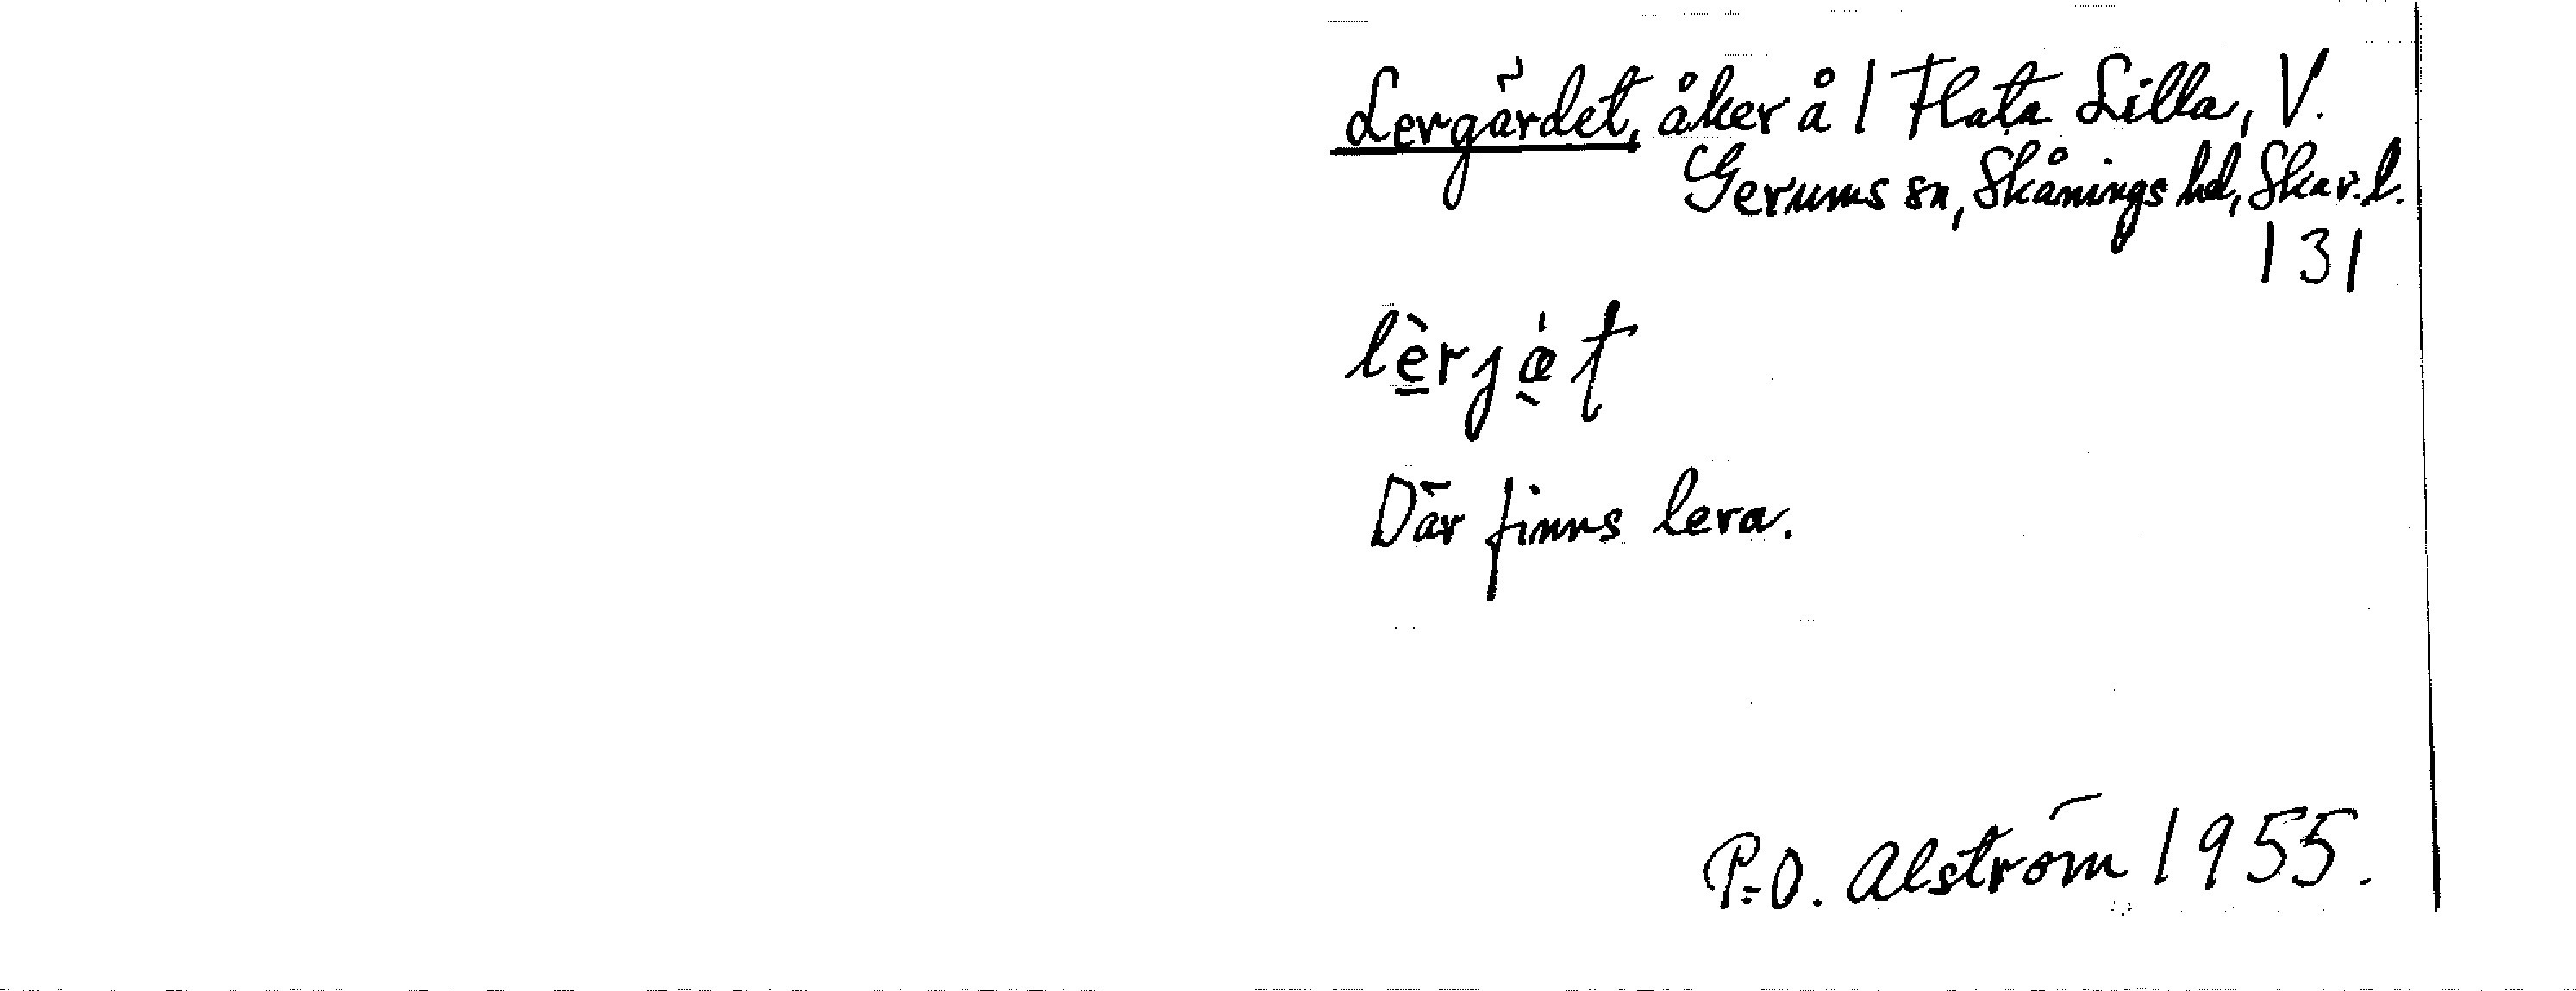 Lergärdet, åker å 1 Flata Lilla, V.
Gerums sn, Skånings hd, Skar. l.
131
lèrjæ̀t
Där finns lera.
P-O. Alström 1955.